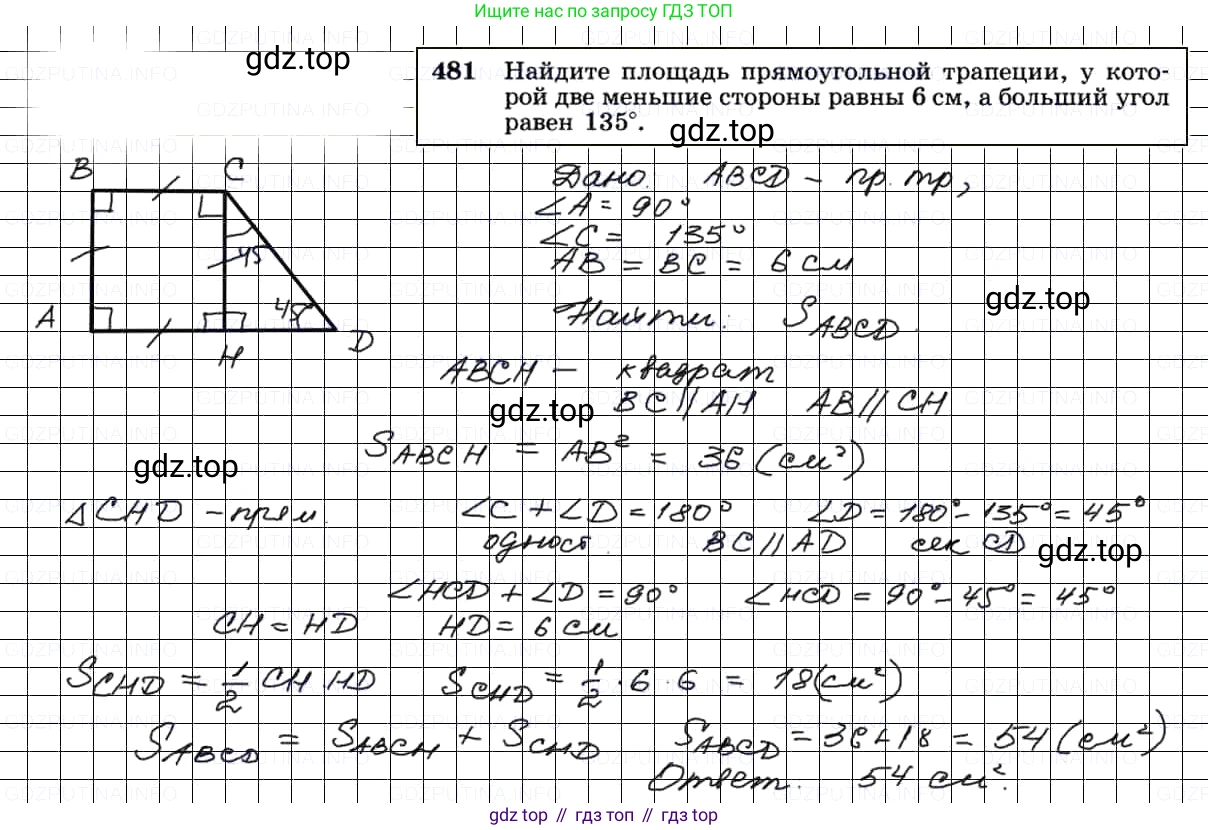 Ищите нас по запросу ГДЗ ТОП
gdz.top
481 Найдите площадь прямоугольной трапеции, у кото-
рой две меньшие стороны равны 6 см, а больший угол
равен 135°.
gdz.top
B C
Дано. ABCD – пр. тр,
∠A = 90°
∠C = 135°
45
AB = BC = 6 см
gdz.top
Найти: S_ABCD.
A 45
H D
ABCH – квадрат
gdz.top
BC // AH AB // CH
S_ABCH = AB² = 36 (см²)
gdz.top
△CHD – прям. ∠C + ∠D = 180° ∠D = 180° – 135° = 45°
одност. BC // AD сек CD
gdz.top
∠HCD + ∠D = 90° ∠HCD = 90° – 45° = 45°
CH = HD HD = 6 см
S_CHD = 1/2 CH · HD S_CHD = 1/2 · 6 · 6 = 18 (см²)
S_ABCD = S_ABCH + S_CHD S_ABCD = 36 + 18 = 54 (см²)
Ответ: 54 см².
gdz топ // гдз топ // gdz top